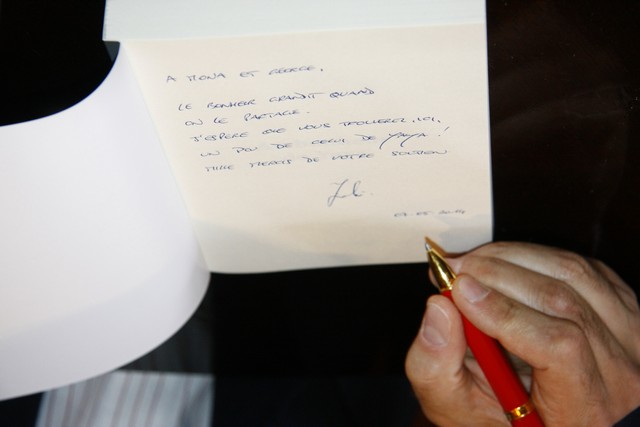 A MONA ET GEORGE,
LE BONHEUR GRANDIT QUAND
ON LE PARTAGE.
J'ESPERE QUE VOUS TROUVEREZ, ICI,
UN PEU DE CELUI DE YAYA!
MILLE MERCIS DE VOTRE SOUTIEN